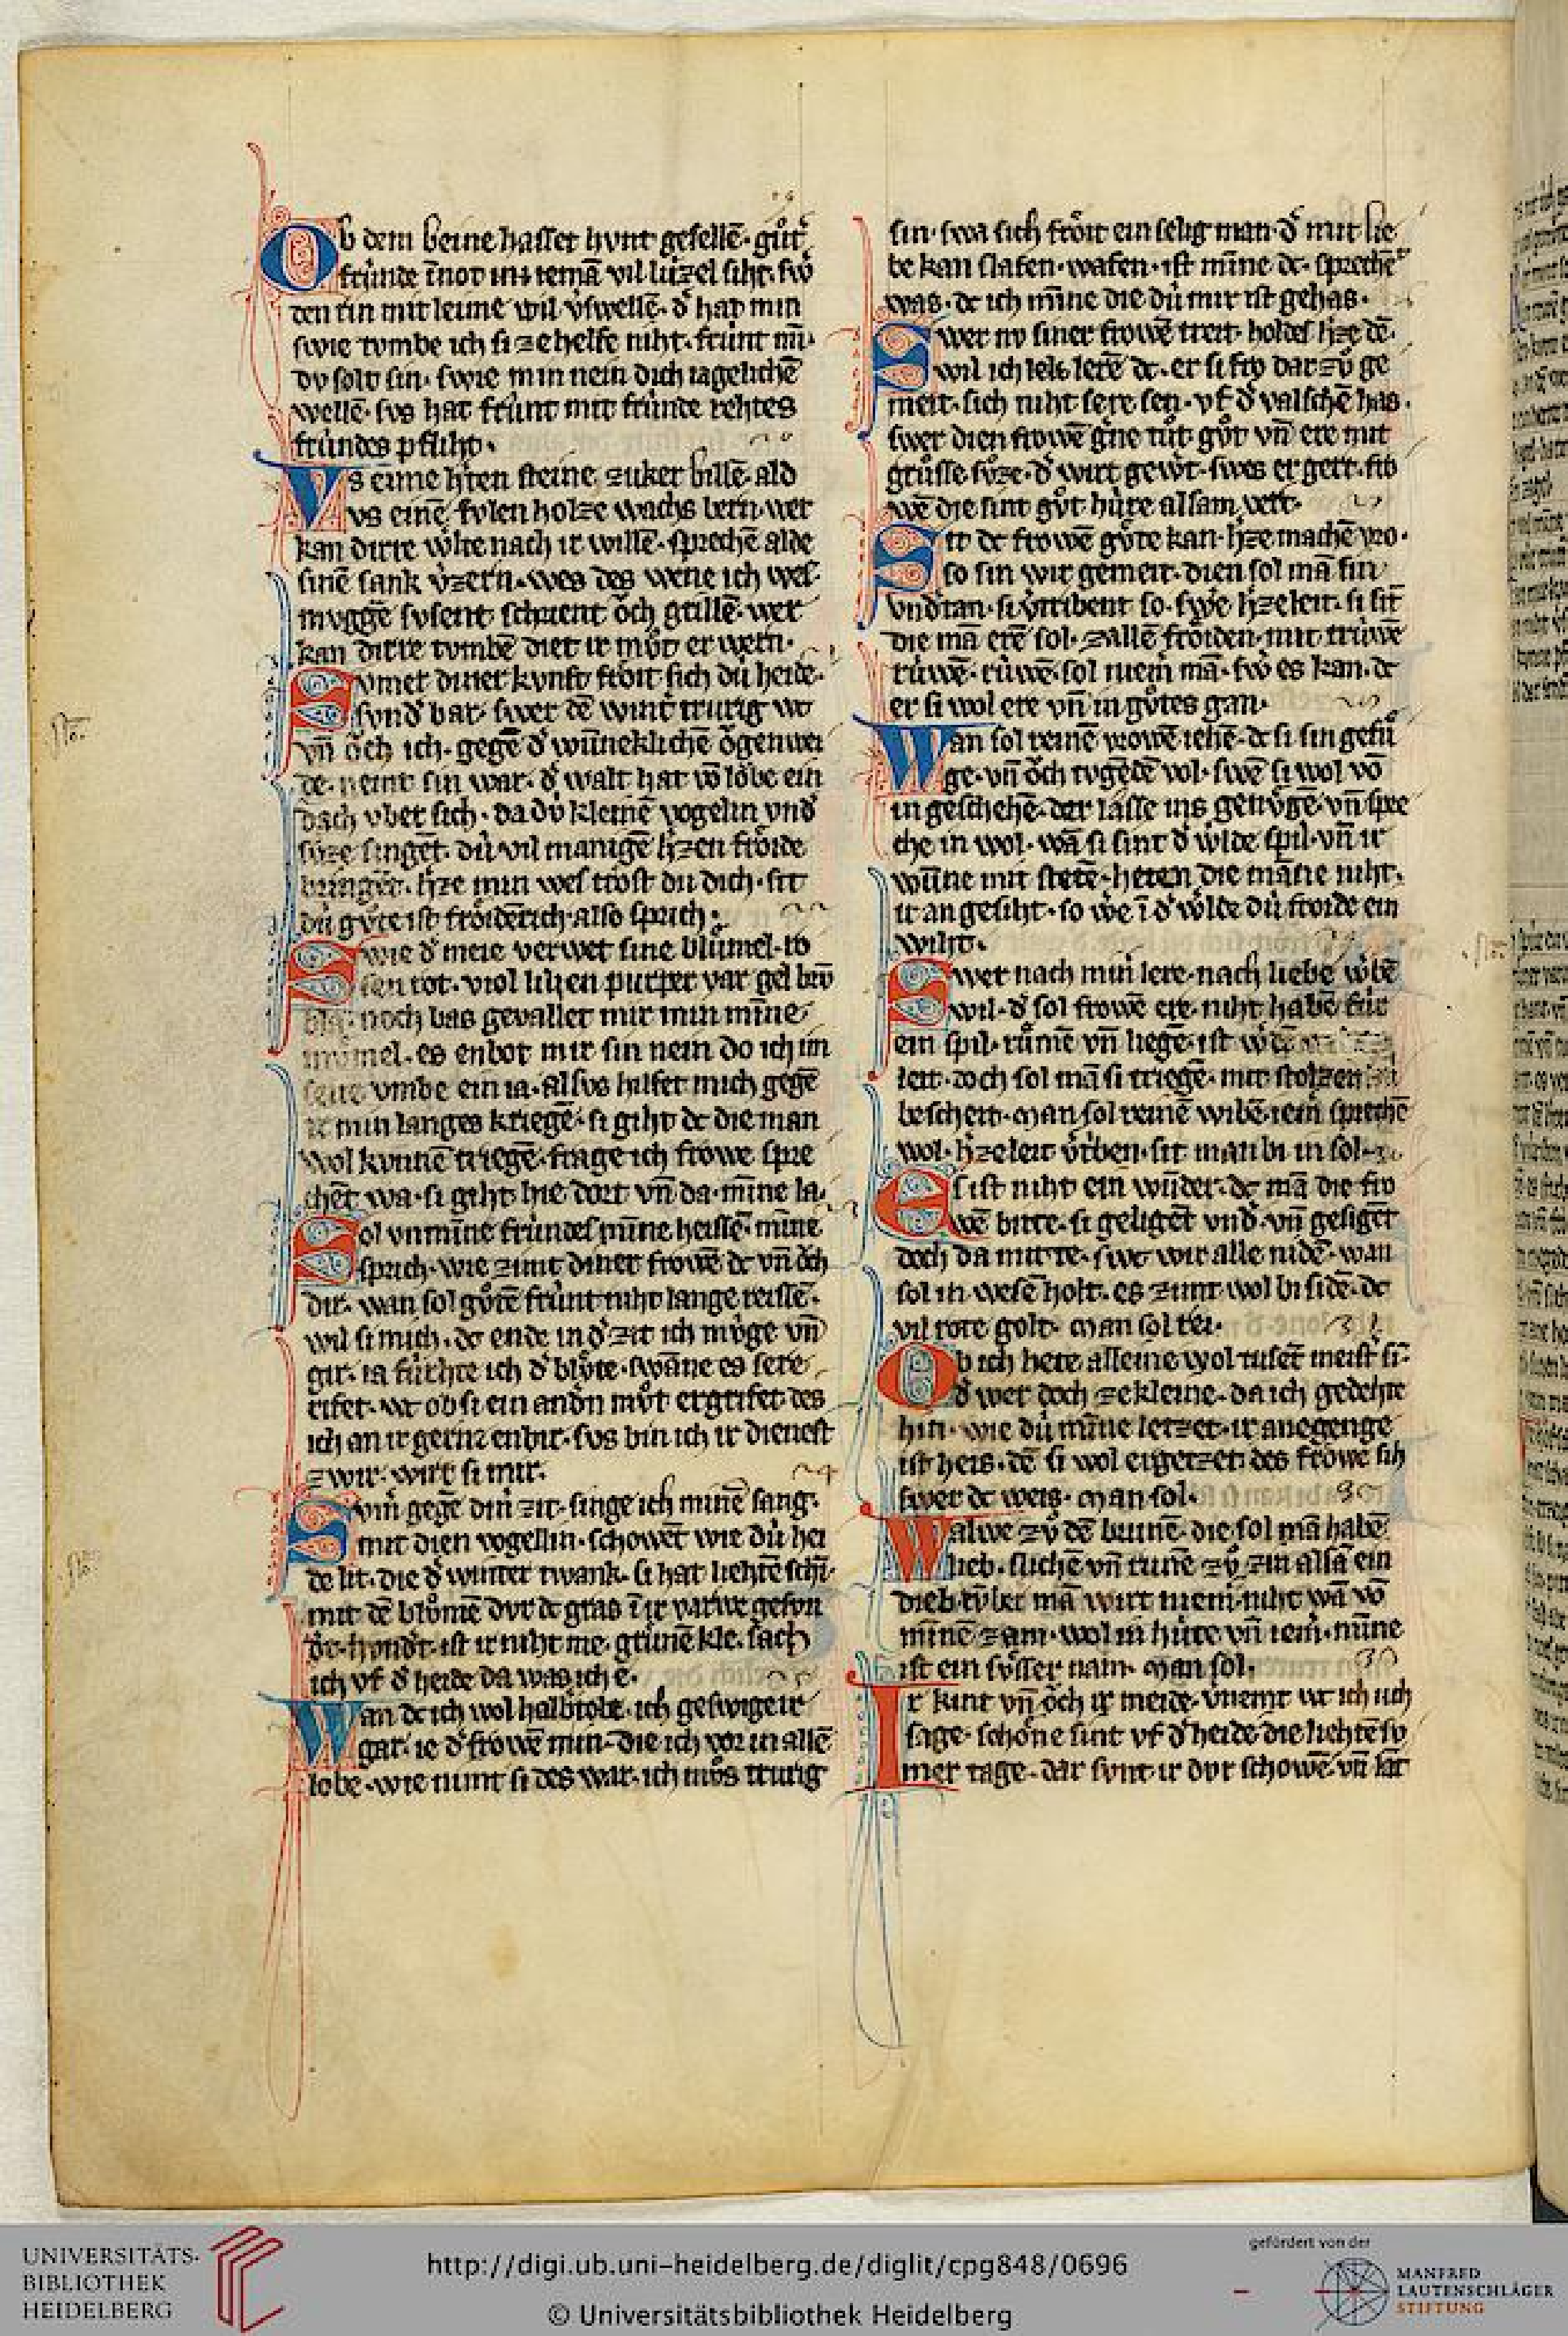 Ob dem beine hasset hvnt gesellē· gůt͛
frúnde ī not ins iemā vil lúzel siht· swˢ
den rin mit leime wil vˢswellē· dˢ hat min
swie tvmbe ich si ze helfe niht· frúnt mī·
dv solt sin· swie min nein dich iagelichē
wellē· svs hat frúnt mit frúnde rehtes
frúndes pfliht·
Vs eime hˢten steine zuker billē· ald
vs einē fvlen holze wachs bern· wer
kan dirre wˢlte nach ir willē· sprechē alde
sinē sank vˢzern· wes des wene ich wel·
mvgge svsent· schrient ôch grillē· wer
kan dirre tvmbē diet ir mv̊t er wern·
Svmer diner kvnft frôit sich dú heide·
svndˢ bar· swer dē wintˢ trurig wˢ
vn̄ ôch ich· gegē dˢ wūneklichē ôgenwei
de· nemt sin war· dˢ walt hat vō lôbe ein
dach vber sich· da dv́ kleinē vogelin vndˢ
sv̊ze singēt· dú vil manigē hˢzen frôide
bringēt· hˢze min wes trost du dich· sit
dú gv̊te ist frôidērich· also sprich·
Swie dˢ meie verwet sine blůmel· ro
sen rot· viol lilien purper var gel brv̄
bla· noch bas gevallet mir min mīne
mv́mel· es enbot mir sin nein do ich im
seite vmbe ein ia· alsvs hilfet mich gegē
ir min langes kriegē· si giht dc die man
wol kvnnē triegē· frage ich frowe spre
chēt wa· si giht hie dort vn̄ da· mīne la·
Sol vnmīne frúndes mīne heissē· mīne
sprich· wie zimt diner frowē dc vn̄ ôch
dir· wan sol gv̊tē frúnt niht lange reissē·
wil si mich· dc ende in dˢ zit ich mv́ge vn̄
gir· ia fúrhte ich dˢ blv̊te· swāne es sere
rifet· wˢ ob si ein andˢn mv̊t ergrifet· des
ich an ir gerne enbir· svs bin ich ir dienest
zwir· wirt si mir·
Svm̄ˢ gegē dinˢ zit· singe ich minē sang·
mit dien vogellin· schowēt wie dú hei
de lit· die dˢ winter twank· si hat liehtē schī·
mit dē blv̊mē dvr dc gras ī ir varwe gesvn
dˢt· hvndˢt· ist ir niht me· grúnē kle· sach
ich vf dˢ heide da was ich e·
Wan dc ich wol halbˢ tobe· ich geswige ir
gar· ie dˢ frowē min· die ich vor in allē
lobe· wie nimt si des war· ich mv̊s trurig
sin· swa sich frôit ein selig man· dˢ mit lie
be kan slafen· wafen· ist mīne dc· sprechēˢ
was· dc ich mīne die dú mir ist gehas·
Swer nv siner frowē treit· holdes hˢze dē·
wil ich leis lerē dc· er si fro dar zv̊ ge
meit· sich niht sere sen· vf dˢ valschē has·
swer dien frowē gˢne tůt· gv̊t vn̄ ere mit
grůsse sv̊ze· dˢ wirt gewˢt· swes er gert· fro
wē die sint gv̊t húre alsam vert·
Sit dc frowē gv̊te kan· hˢze machē vro·
so sin wir gemeit· dien sol mā sin
vndˢtan· si vˢtribent so· swˢe hˢzeleit· si sīt
die mā erē sol· zallē frôiden· mit trúwē
rúwē· rúwē· sol niemˢ mā· swˢ es kan· dc
er si wol ere vn̄ in gv̊tes gan·
Wan sol reinē vrowē iehē· dc si sin gefů
ge· vn̄ ôch tvgēdē vol· swē si wol vō
in geschehē· der lâsse ins genv̊gē· vn̄ spre
che in wol· wā si sint dˢ wˢlde spil· vn̄ ir
wūne mit stetē· heten die māne niht·
ir angesiht· so wˢe ī dˢ wˢlde dú froide ein
wiht·
Swer nach minˢ lere· nach liebe wˢbē
wil· dˢ sol frowē ere· niht habē fúr
ein spil· růmē vn̄ liegē· ist
leit· doch sol mā si triegē· mit stolzen
bescheit· man sol reinē wibē· iemˢ sprechē
wol· hˢzeleit vˢtˢben· sit man bi in sol·
Es ist niht ein wūder· dc mā die fro
wē bitte· si geligēt vndˢ· vn̄ gesigēt
doch da mitte· swc wir alle nidē· wan
sol in wesē holt· es zimt wol bi sidē· dc
vil rote golt· man sol rei·
Ob ich hete alleine wol tusēt meistˢ si·
dˢ wer doch ze kleine· da ich gedehte
hin· wie dú mīne letzet· ir anegenge
ist heis· dē si wol ergetzet· des frôwe sih
swer dc weis· man sol·
Walwe zv̊ dē brunē· die sol mā habē
lieb· slichē vn̄ runē zv̊ zin alsā ein
dieb· tvber mā wirt niemˢ niht wā vō
minē zam· wol in húte vn̄ iemˢ· mīne
ist ein sv̊sser nam· man sol·
Ir kint vn̄ ôch ir meide· vˢnemt wc ich úch
sage· schône sint vf dˢ heide· die liehtē sv
mer tage· dar svnt ir dvr schowē· vn̄ lāt
UNIVERSITÄTS-
BIBLIOTHEK
HEIDELBERG
http://digi.ub.uni-heidelberg.de/diglit/cpg848/0696
© Universitätsbibliothek Heidelberg
gefördert von der
MANFRED
LAUTENSCHLÄGER
STIFTUNG